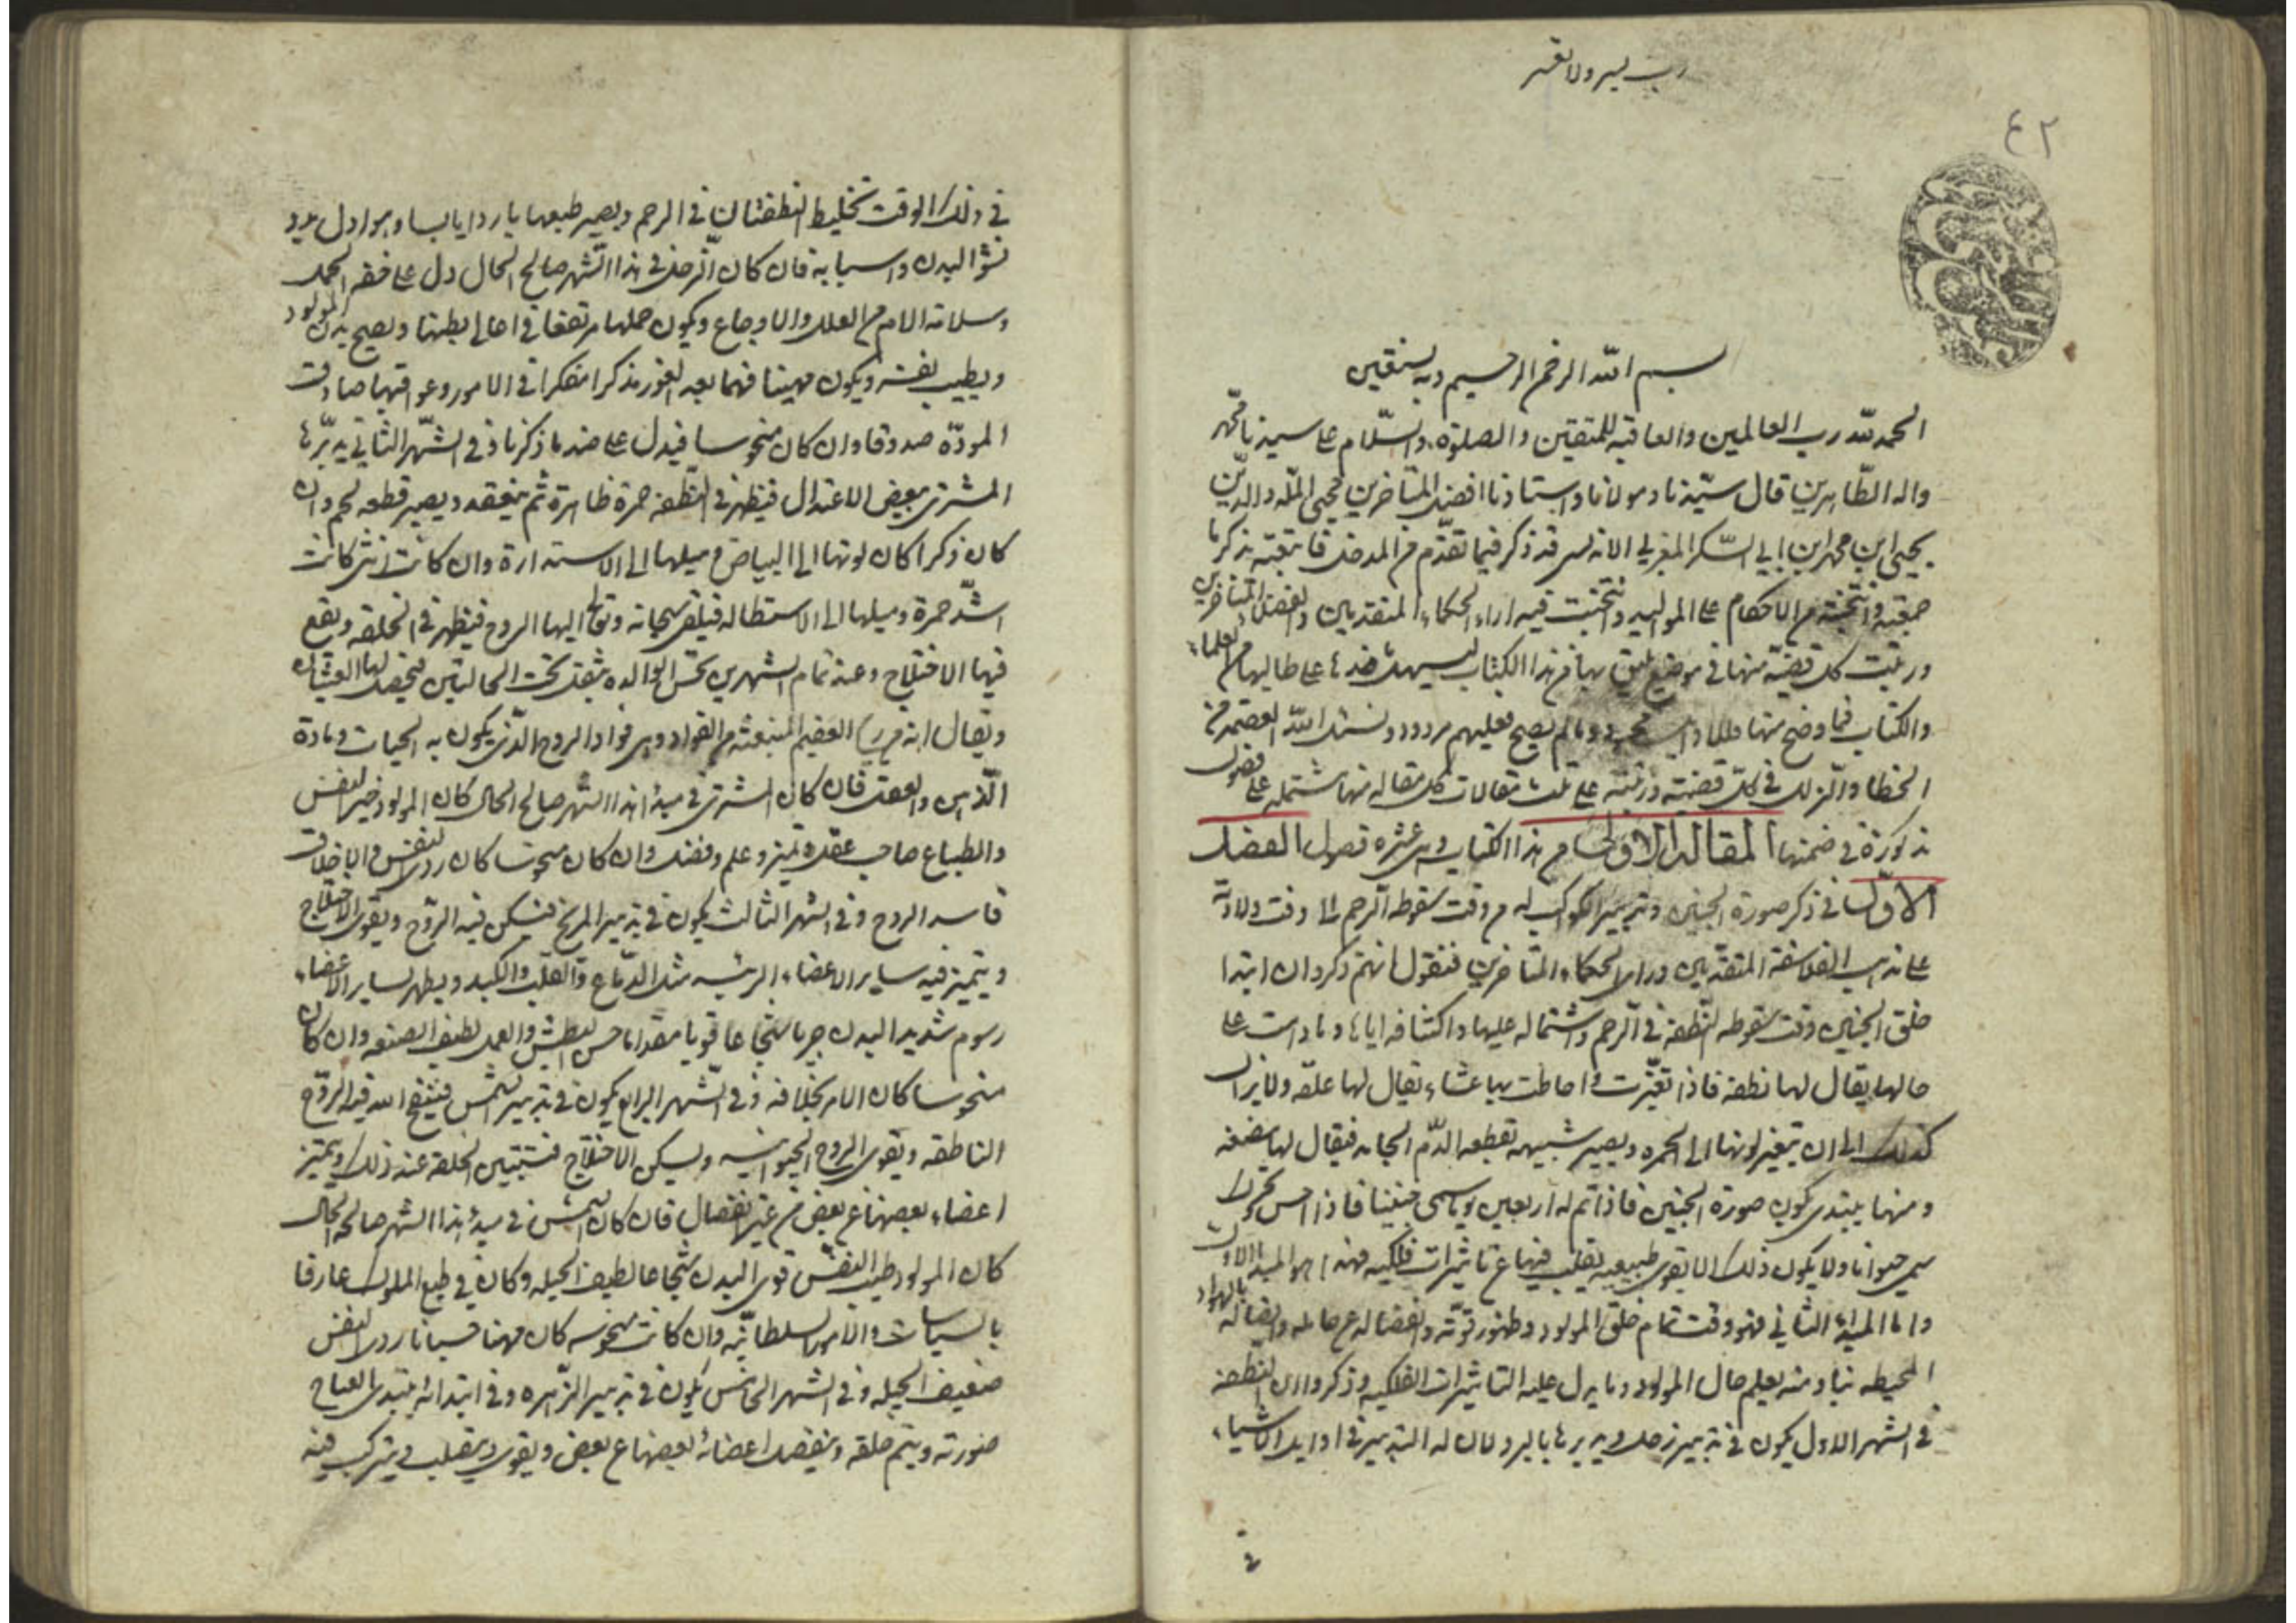 رب يسر ولا تعسر
٤٢
بسم الله الرحمن الرحيم وبه نستعين
الحمد لله رب العالمين والعاقبه للمتقين والصلوة والسلام على سيدنا محمد
واله الطاهرين قال سيدنا ومولانا واستادنا افضل المتاخرين محيى المله والدين
يحيى ابن محمد ابن ابي الشكر المغربي الاندلسي قد ذكر فيما تقدم من المدخل فاتبعته بذكر ما
جمعته وانتخبته من الاحكام على المواليد وانتخبت فيه اراء الحكماء المتقدمين والفضلاء المتاخرين
ورتبت كل قضية منها في موضع يليق بها من هذا الكتاب ليسهل اخذها على طالبها من العلماء
والكتاب فما وضح منها وما لم يصح فعليهم مردود ونسئل الله العصمة من
الخطا والزلل في كل قضية ورتبته على ثلث مقالات كل مقاله منها مشتمله على فصول
مذكورة في ضمنها المقالة الاولى من هذا الكتاب وهى عشره فصول الفصل
الاول في ذكر صورة الجنين وتدبير الكواكب له من وقت سقوطه الرحم الى وقت ولادته
على مذهب الفلاسفة المتقدمين وراى الحكماء المتاخرين فنقول انهم ذكروا ان ابتدا
خلق الجنين وقت سقوط النطفة في الرحم واشتماله عليها واكتنافه اياها وما دامت على
حالها يقال لها نطفة فاذا تغيرت واحاطت بها غشاء يقال لها علقه ولا يزال
كذلك الى ان يتغير لونها الى الحمره ويصير شبيهه بقطعه الدم الجامد فيقال لها مضغه
ومنها يبتدى تكون صورة الجنين فاذا تم له اربعين يوما سمى جنينا فاذا احس بحركة
سمي حيوانا ولا يكون ذلك الا بقوى طبيعيه يقلب فيها عن تاثيرات فلكيه فهذا هو المبدا الاول
واما المبدا الثاني فهو وقت تمام خلق المولود وظهور قوته وانفصاله عن حامله واتصاله بالهواء
المحيطه بنا ومنه يعلم حال المولود وما يدل عليه التاثيرات الفلكيه وذكروا ان النطفه
في الشهر الاول يكون في تدبير زحل ويدبرها بالبرد لان له التدبير في اوايل الاشياء
في ذلك الوقت تخليط النطفتان في الرحم ويصير طبعها باردا يابسا وهو اول بدو
نشؤ البدن واسبابه فان كان زحل في هذا الشهر صالح الحال دل على خفه الحمل
وسلامة الام من العلل والاوجاع ويكون حملها مرتفعا في اعالى بطنها ويصح بدن المولود
ويطيب نفسه ويكون مهيبا فهما بعيد الغور مذكرا متفكرا في الامور وعواقبها صادقت
المودة صدوقا وان كان منحوسا فيدل على ضد ما ذكرنا وفي الشهر الثاني يدبرها
المشترى ببعض الاعتدال فيظهر في النطفه حمرة ظاهرة ثم ينعقد ويصير قطعه لحم وان
كان ذكرا كان لونها الى البياض وميلها الى الاستدارة وان كانت انثى كانت
اشد حمرة وميلها الى الاستطاله فيلقى سبحانه وتعالى اليها الروح فيظهر في الخلقه ويقع
فيها الاختلاج وعند تمام الشهرين تحس الوالده بثقل تحت الحالبين فيحصل لها الغثيان
ويقال انه من العظيم المنبعثه من الفواد وهى فواد الروح الذى يكون به الحيات ومادة
الذهن والعقل فان كان المشترى في مبدا هذا الشهر صالح الحال كان المولود خير النفس
والطباع صاحب عقل وتميز وعلم وفضل وان كان منحوسا كان ردى النفس والاخلاق
فاسد الروح وفي الشهر الثالث يكون في تدبير المريخ فيسكن فيه الروح ويقوى الاختلاج
ويتميز فيه ساير الاعضاء الرئيسه مثل الدماغ والقلب والكبد ويظهر لساير الاعضاء
رسوم شديد البدن جريا شجاعا قويا مقداما حسن البطش والعمل لطيف الصنعه وان كان
منحوسا كان الامر بخلافه وفي الشهر الرابع يكون في تدبير الشمس فينفخ الله فيه الروح
الناطقه ويقوى الروح الحيوانيه ويسكن الاختلاج فتتبين الخلقه عند ذلك ويتميز
اعضاء بعضها عن بعض من غير انفصال فان كان الشمس في مبدا هذا الشهر صالحه الحال
كان المولود طيب النفس قوى البدن شجاعا لطيف الحيله وكان في طبع الملوك عارفا
بالسياسات والامور السلطانيه وان كانت منحوسه كان مهينا جبانا ردى النفس
ضعيف الحيله وفي الشهر الخامس يكون في تدبير الزهره وفي ابتدائه يبتدى
صورته ويتم خلقه وينفصل اعضائه بعضها عن بعض ويقوى ويتقلب ويتركب فيه